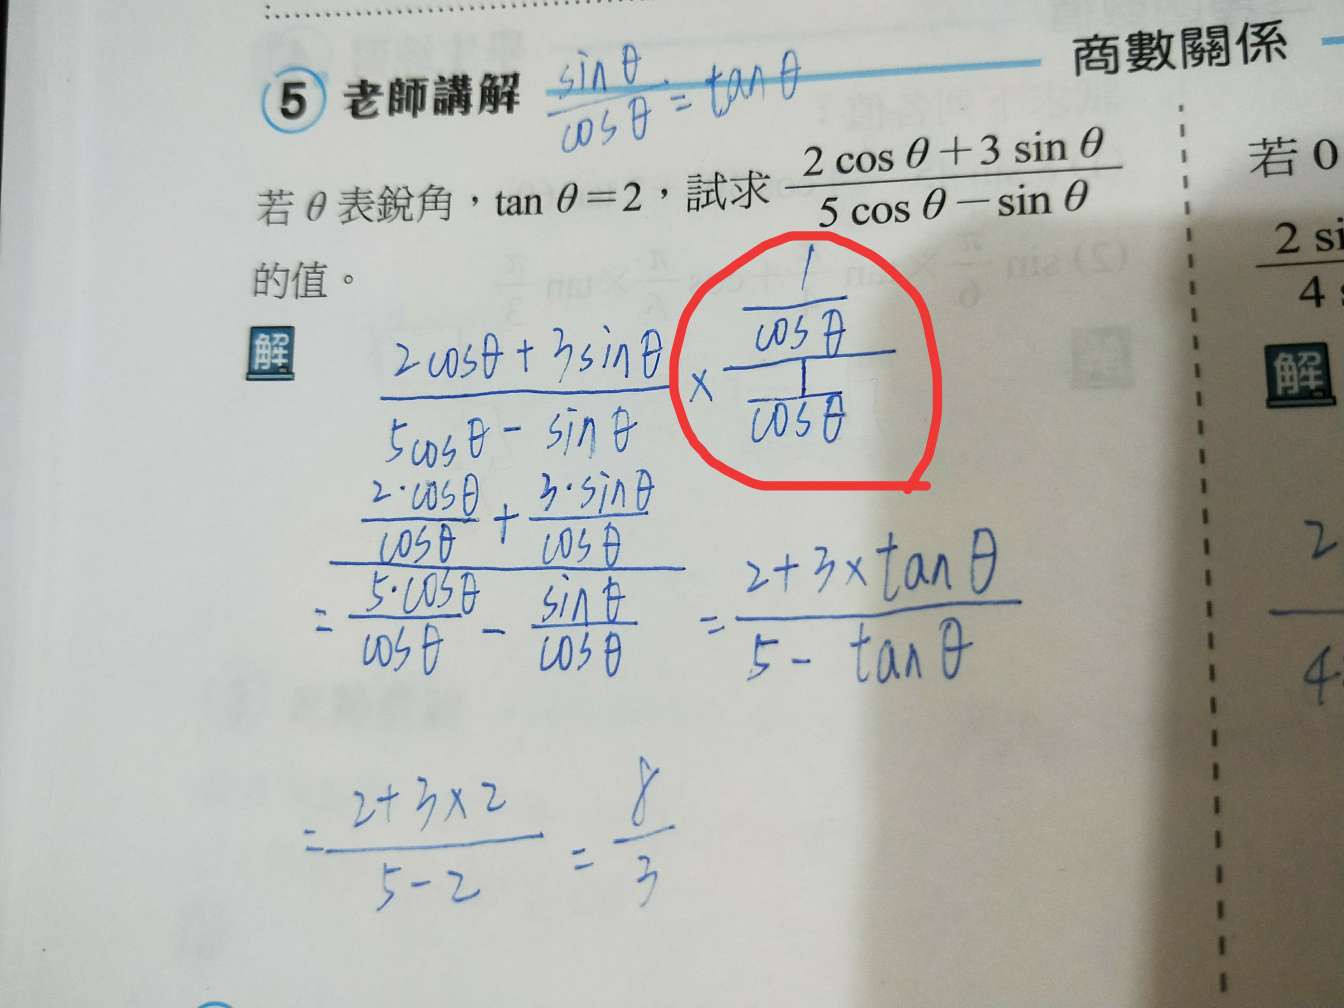 ⑤ 老師講解 sinθ/cosθ = tanθ 商數關係
若 θ 表銳角，tan θ＝2，試求 (2 cos θ＋3 sin θ)/(5 cos θ－sin θ)
的值。
解
(2cosθ + 3sinθ)/(5cosθ - sinθ) × (1/cosθ)/(1/cosθ)
= (2·cosθ/cosθ + 3·sinθ/cosθ)/(5·cosθ/cosθ - sinθ/cosθ) = (2+3×tanθ)/(5 - tanθ)
= (2+3×2)/(5-2) = 8/3
若 0
2 si
4 s
解
2
4